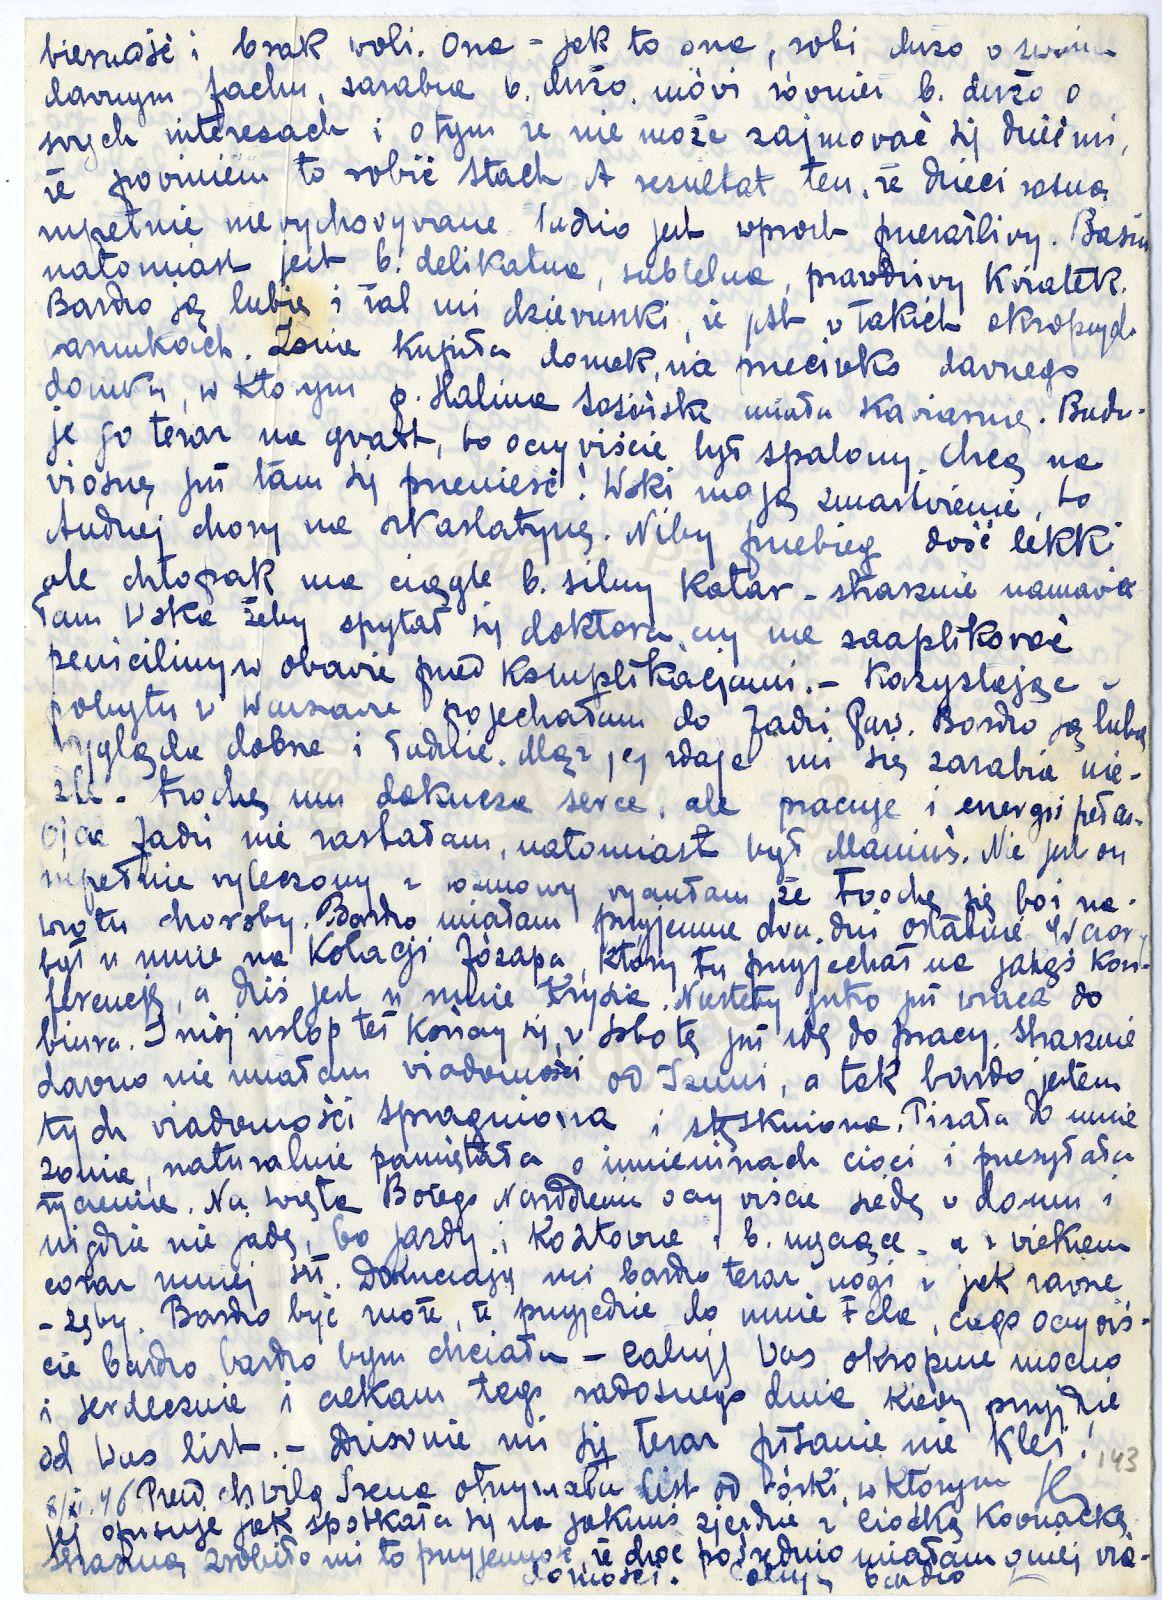 bierność i brak woli. Ona - jak to ona, robi dużo w swoim
dawnym fachu, zarabia b. dużo, mówi również b. dużo o
swych interesach i o tym że nie może zajmować się dziećmi,
że powinien to robić Stach. A rezultat ten, że dzieci rosną
zupełnie niewychowywane. jest wprost przeraźliwy. Basia
natomiast jest b. delikatna, subtelna, prawdziwy kwiatek.
Bardzo ją lubię i żal mi dziewuszki, że jest w takich okropnych
warunkach. Zosie kupiła domek, na przeciwko dawnego
domku, w którym p. Halina miała kawiarnię. Budu-
je go teraz na gwałt, bo oczywiście był spalony. Chcą na
wiosnę już tam się przenieść! Wski mają zmartwienie, bo
Andrzej chory na szkarlatynę. Niby przebieg dość lekki
ale chłopak ma ciągle b. silny katar - strasznie namawia-
łam Wska żeby spytał się doktora, czy nie zaaplikować
peniciliny w obawie przed komplikacjami. - Korzystając z
pobytu w Warszawie pojechałam do Jadzi Paw. Bardzo ją lubię
wygląda dobrze i ładnie. Mąż jej zdaje mi się zarabia nie-
źle. Trochę mu dokucza serce, ale pracuje i energii pełen.
Ojca Jadzi nie zastałam, natomiast był Maniuś. Nie jest on
zupełnie wyleczony z rozmowy wyczułam że trochę się boi na-
wrotu choroby. Bardzo miałam przyjemne dwa dni ostatnie. Wczoraj
był u mnie na kolacji Józapa, który tu przyjechał na jakąś kon-
ferencję, a dziś jest u mnie Krysia. Niestety jutro już wraca do
biura. I mój urlop też kończy się, w sobotę już idę do pracy. Strasznie
dawno nie miałam wiadomości od Izuni, a tak bardzo jestem
tych wiadomości spragniona i stęskniona. Pisała do mnie
Zonia, naturalnie pamiętała o imieninach cioci i przesyłała
życzenia. Na święta Bożego Narodzenia oczywiście siedzę w domu i
nigdzie nie jadę, bo jazdy i kosztowne i b. męczące - a z wiekiem
coraz mniej sił. Dokuczają mi bardzo teraz nogi i jak zawsze
- zęby. Bardzo być może, że przyjedzie do mnie Fela, czego oczywiś-
cie bardzo bardzo bym chciała - Całuję Was okropnie mocno
i serdecznie i czekam tego radosnego dnia kiedy przyjdzie
od Was list. - Dziwnie mi się teraz pisanie nie klei!
143
8/XI.46 Przed chwilą Irena otrzymała list od córki, w którym
jej opisuje jak spotkała się na jakimś zjeździe z Ciotką Kownacką
Straszną zrobiło mi to przyjemność, że choć pośrednio miałam o niej wia-
domości. Całuję bardzo